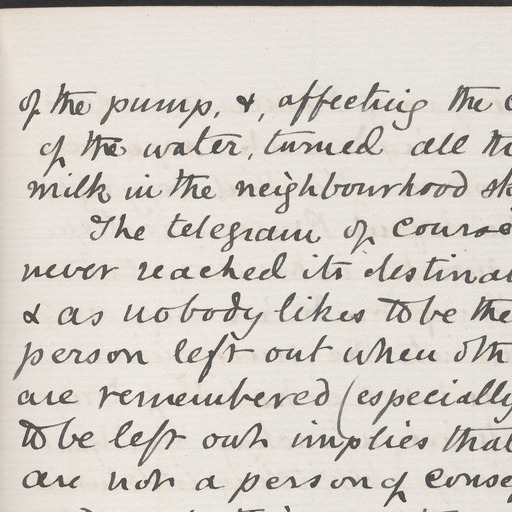 of the pump, &, affecting the
of the water, turned all
milk in the neighbourhood
The telegram of course
never reached its
& as nobody likes to be the
person left out when
are remembered (especially
to be left out implies that
are not a person of